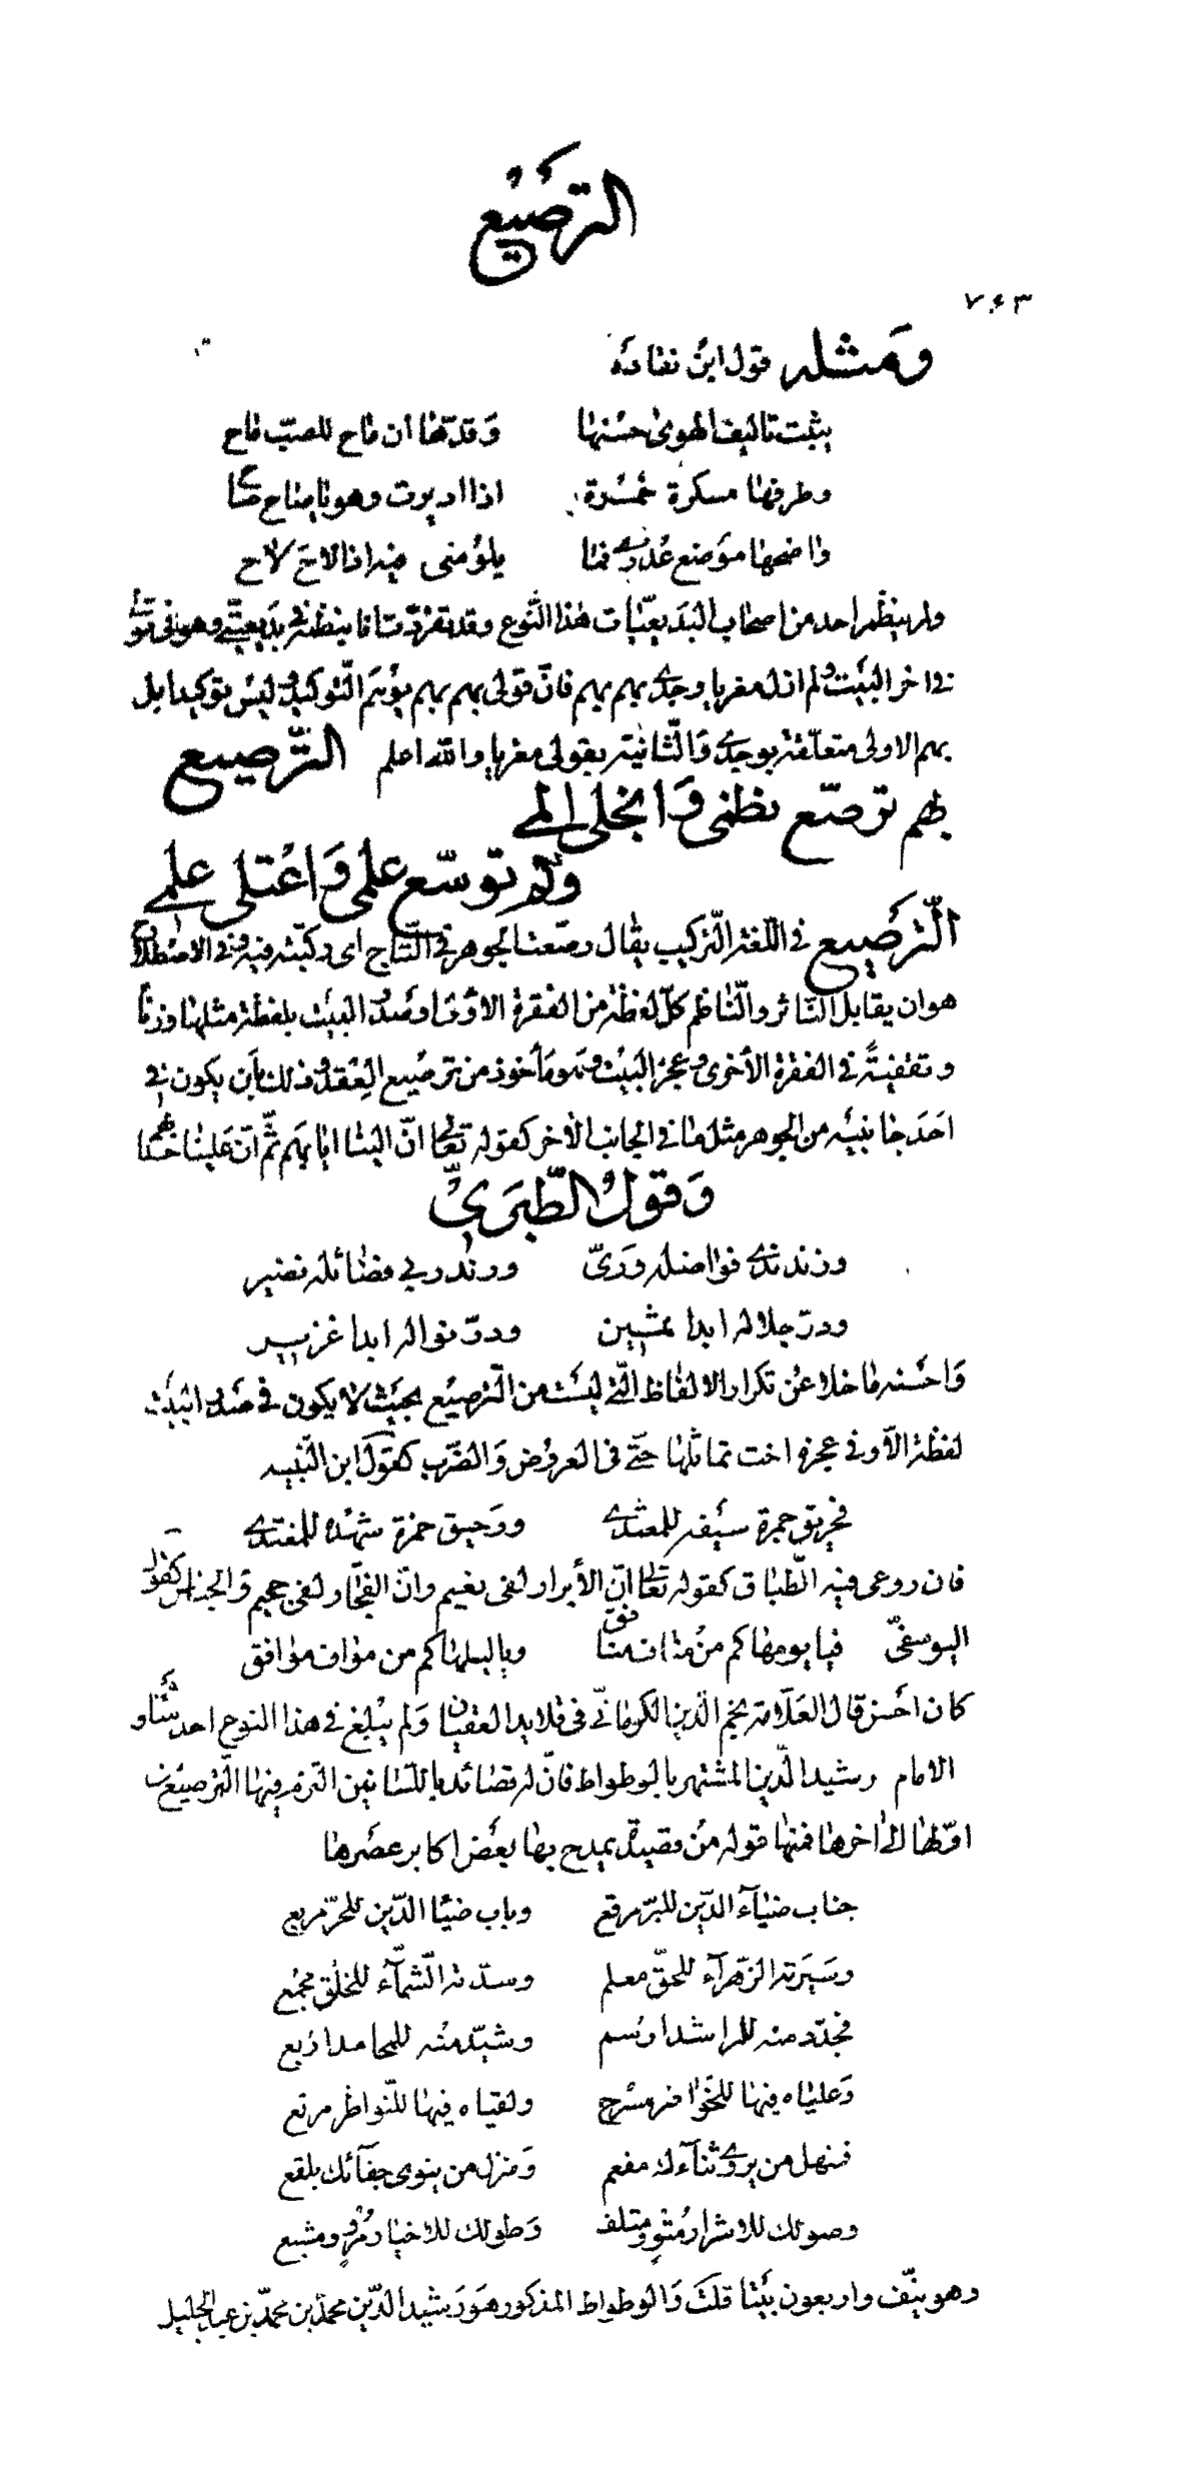 الترصيع
٧٤٣
ومثله قول ابن نفاده
يثبت تاليف الهوى حسنها وقدّها ان ماح للصبّ ماح
وطرفها مسكرة خمرة اذا اديرت وهو يا صاح صاح
واضحها موضع عذري فما يلومني فيه اذا لاح لاح
ولم ينظم احد من اصحاب البديعيّات هذا النّوع وقد تفرّدت انا بنظمه في بديعيتي وهو في قولي
في اخر البيت ولم ازل مغريا وجدي بهم بهم فانّ قولي بهم بهم يوهم التّوكيد وليس توكيدا بل
بهم الاولى متعلّقة بوجدي والثّانية بقولي مغريا والله اعلم الترصيع
بهم ترصّع نظمي وانجلى المي
وكم توسّع علمي واعتلى علمي
الترصيع في اللّغة التّركيب يقال رصّعت الجوهر في التّاج اى ركّبته فيه وفي الاصطلاح
هو ان يقابل النّاثر والنّاظم كلّ لفظة من الفقرة الاولى او صدر البيت بلفظة مثلها وزنا
وتقفيةً في الفقرة الأخرى وعجز البيت وهو مأخوذ من ترصيع العقد وذلك بأن يكون في
احد جانبيه من الجوهر مثل ما في الجانب الآخر كقوله تعالى انّ الينا ايابهم ثمّ انّ علينا حسابهم
وقول الطّبريّ
وزند ندى فواضله ورىّ ورند ربى فضائله نضير
ودرّ جلاله ابدا ثمين ودرّ نواله ابدا غزير
واحسنه ما خلا عن تكرار الالفاظ الّتي ليست من الترصيع بحيث لا يكون في صدر البيت
لفظة الّا وفي عجزه اخت تماثلها حتّى في العروض والضّرب كقول ابن النّبيه
فحريق جمرة سيفه للمعتدي ورحيق خمرة شهده للمفتدي
فان روعى فيه الطّباق كقوله تعالى انّ الأبرار لفي نعيم وانّ الفجّار لفي جحيم والجناس كقول
اليوسفيّ فيا يومها كم من مناف منافق ويا ليلها كم من مواف موافق
كان احسن قال العلّامة نجم الّدين الكرماني في قلايد العقيان ولم يبلغ في هذا النوع احد شأو
الامام رشيد الدّين المشتهر بالوطواط فانّ له قصائد باللّسانين التزم فيها الّترصيع من
اوّلها الى اخرها فمنها قوله من قصيدة يمدح بها بعض اكابر عصرها
جناب ضياء الدّين للبرّ مرقع وباب ضيا الدّين للحرّ مربع
وسيرته الزّهراء للحقّ معلم وسدّته الشّمّاء للخلق مجمع
فجدّد منه للراشد ارسم وشيّد منه للمحامد اربع
وعلياه فيها للخواضر مسرح ولقياه فيها للنّواظر مرتع
فمنهل من يروى ثناءك مفعم ومنزل من ينوى جفائك بلقع
وصولك للاشرار مثو ومتلف وطولك للاخيار مرو ومشبع
وهو نيّف واربعون بيتا قلت والوطواط المذكور هو رشيد الدّين محمّد بن محمّد بن عبد الجليل